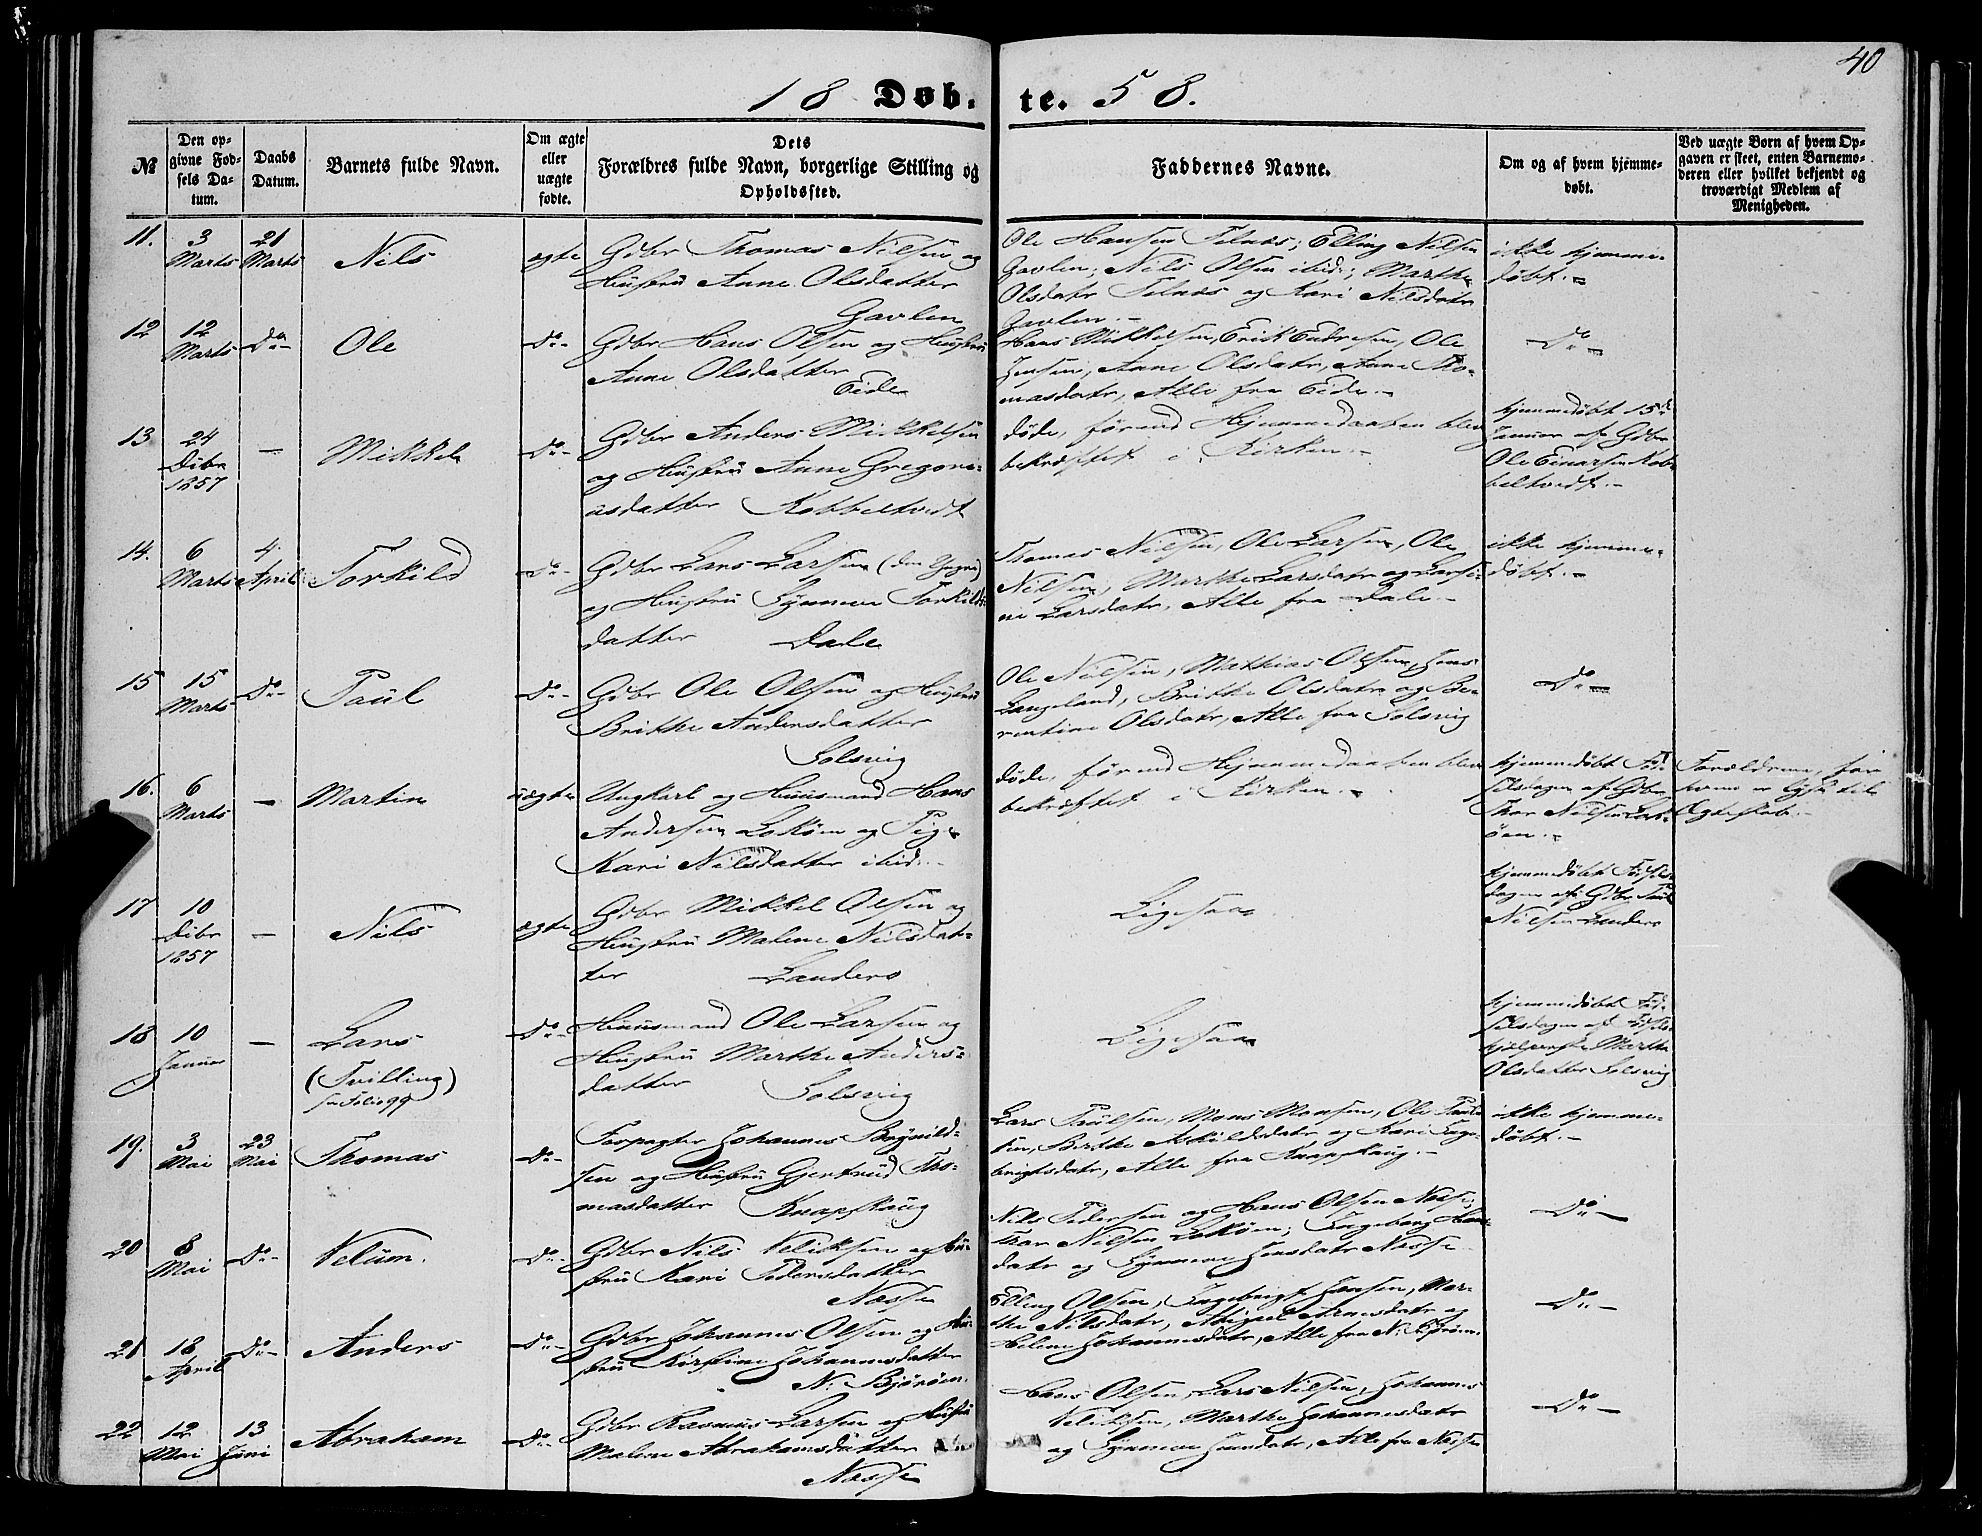 40
18 Døb- te. 58.
№
Den opgivne Fødsels Datum.
Daabs Datum.
Barnets fulde Navn.
Om ægte eller uægte fødte.
Dets Forældres fulde Navn, borgerlige Stilling og Opholdssted.
Faddernes Navne.
Om og af hvem hjemmedøbt.
Ved uægte Børn af hvem Opgaven er skeet, enten Barnemoderen eller hvilket bekjendt og troværdigt Medlem af Menigheden.
11. 3 Marts 21 Marts Nils ægte
Gdbr Thomas Nilsen og
Hustru Anne Olsdatter
Gavlen
Ole Hansen Telnæs; Elling Nilsen
Gavlen; Nils Olsen ibid; Marthe
Olsdatr Telnæs og Kari Nilsdatr
Gavlen.-
ikke hjemme-
døbt.-
12 12 Marts Do- Ole Do-
Gdbr Hans Olsen og Hustru
Anne Olsdatter
Eide
Hans Mikkelsen, Erik Endresen, Ole
Jensen, Anne Olsdatr, Anne Tho-
masdatr, Alle fra Eide.-
Do-
13 24 Dcbr 1857 - Mikkel Do-
Gdbr Anders Mikkelsen
og Hustru Anne Gregori-
usdatter Kobbeltvedt
døde, førend Hjemmedaaben blev
bekræftet i Kirken.-
hjemmedøbt 15de
Januar af Gdbr
Ole Einarsen Kob-
beltvedt.-
14. 6 Marts 4 April Torkild Do-
Gdbr Lars Larsen (den Yngre)
og Hustru Synneve Torkilds-
datter Dale
Thomas Nilsen, Ole Larsen, Ole
Nilsen, Marthe Larsdatr og Larsi-
ne Larsdatr, Alle fra Dale-
ikke hjemme-
døbt.-
15 15 Marts Do- Paul Do-
Gdbr Ole Olsen og Hustru
Brithe Andersdatter
Solsvig
Ole Nilsen, Mathias Olsen, Jens
Langeland, Brithe Olsdatr og Be-
rentine Olsdatr, Alle fra Solsvig
Do-
16. 6 Marts - Martin uægte
Ungkarl og Huusmand Hans
Andersen Lokøen og Pige
Kari Nilsdatter ibid.-
døde, førend Hjemmedaaben blev
bekræftet i Kirken.-
hjemmedøbt Fød-
selsdagen af Gdbr
Thor Nilsen Lok-
øen.-
Forældrene, for
hvem er lyst til
Ægteskab.-
17 10 Dcbr 1857 - Nils ægte
Gdbr Mikkel Olsen og
Hustru Malene Nilsdat-
ter Landero
Ligesaa
hjemmedøbt Fødsels-
dagen af Gdbr Paul
Nilsen Landero
18 10 Januar - Lars
(Tvilling)
Do-
Huusmand Ole Larsen og
Hustru Marthe Anders-
datter Solsvig
Ligesaa
hjemmedøbt Fød-
selsdagen af Fødsels-
hjelperske Marthe
Olsdatter Solsvig
19. 3 Mai 23 Mai Thomas Do-
Forpagter Johannes Brynild-
sen og Hustru Gjertrud Tho-
masdatter Knapskaug
Lars Poulsen, Mons Monsen, Ole Paul-
sen, Brithe Askildsdatr og Kari Inge-
brigtsdatr, Alle fra Knapskaug.-
ikke hjemme-
døbt.-
20 8 Mai Do- Velum. Do-
Gdbr Nils Veliksen og Hu-
stru Kari Pedersdatter
Næsse
Nils Pedersen og Hans Olsen Næsse;
Thor Nilsen Lokøen; Ingeborg Hans-
datr og Synneve Jensdatr Næsse-
Do-
21 18 April Do- Anders Do-
Gdbr Johannes Olsen og Hu-
stru Kirstine Johannesdatter
N: Bjørøen.
Elling Olsen, Ingebrigt Jensen, Mar-
the Nilsdatr, Abigael Arnesdatr og
Helene Johannesdatr, Alle fra N: Bjørøen.
Do-
22 12 Mai 13 Juni Abraham Do-
Gdbr Rasmus Larsen og Hustru
Malene Abrahamsdatter
Næsse
Hans Olsen, Lars Nilsen, Johannes
Veliksen, Marthe Johannesdatr
og Synneve Jensdatr, Alle fra Næsse
Do-